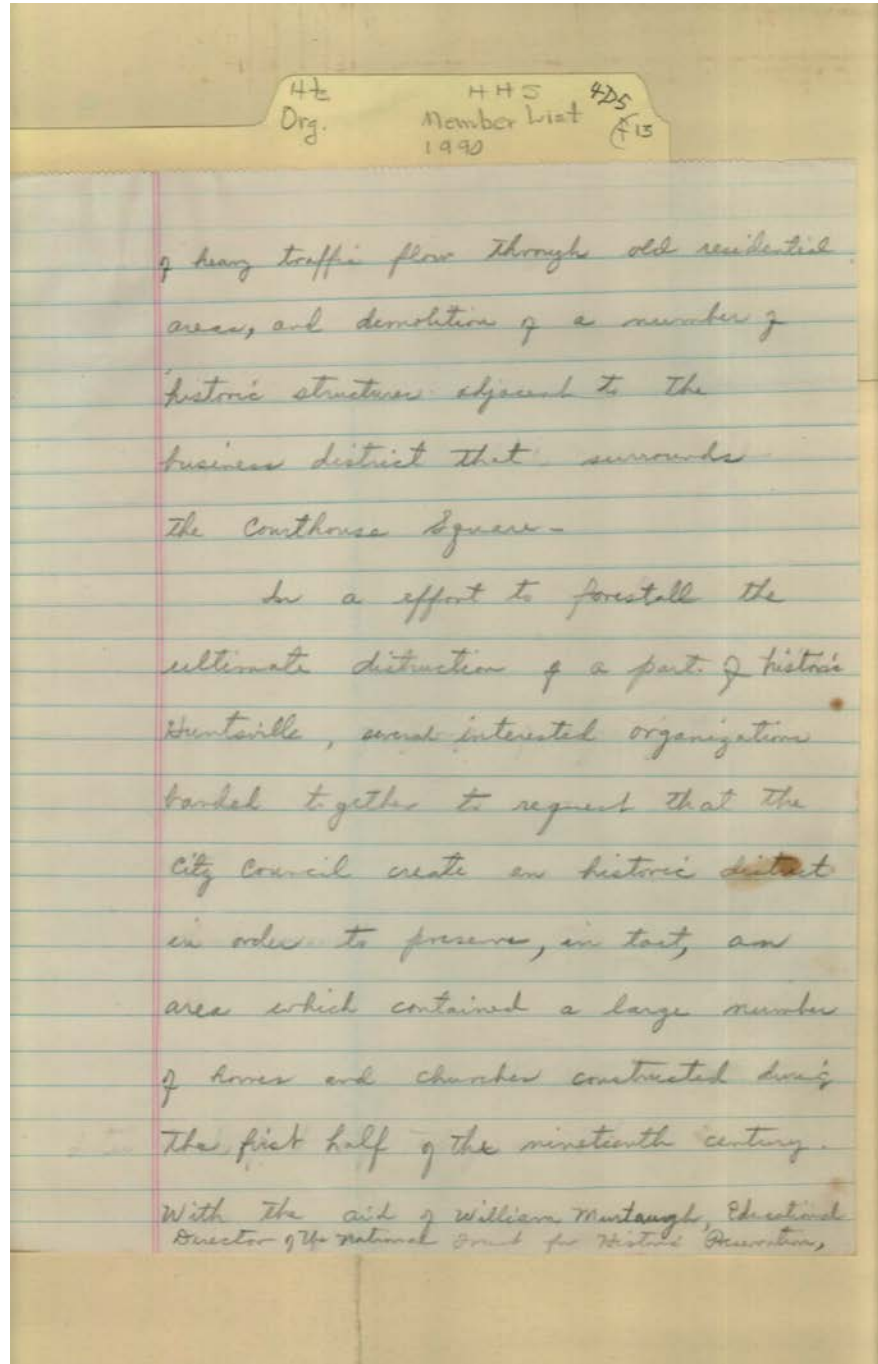 Ht HHS 4D5
Org. Member List F 13
1990
of heavy traffic flow through old residential
areas, and demolition of a number of
historic structures adjacent to the
business district that surrounds
the Courthouse Square-
In a effort to forestall the
ultimate distruction of a part of historic
Huntsville, several interested organizations
banded together to request that the
City Council create an historic district
in order to preserve, in tact, an
area which contained a large number
of homes and churches constructed during
the first half of the nineteenth century.
With the aid of William Murtaugh, Educational
Director of the National Trust for Historic Preservation,